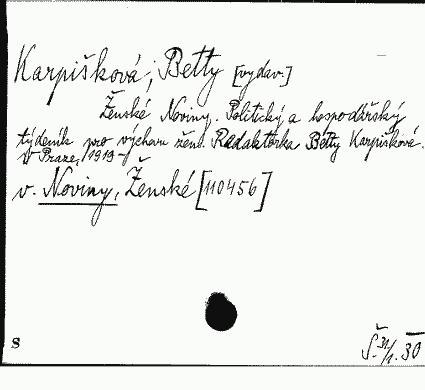 Karpíšková, Betty [vydav.]
Ženské Noviny. Politický a hospodářský
týdeník pro výchovu žen. Redaktorka Betty Karpíšková.
V Praze, 1919-
v. Noviny, Ženské [110456]
S
Š. 31/1. 30